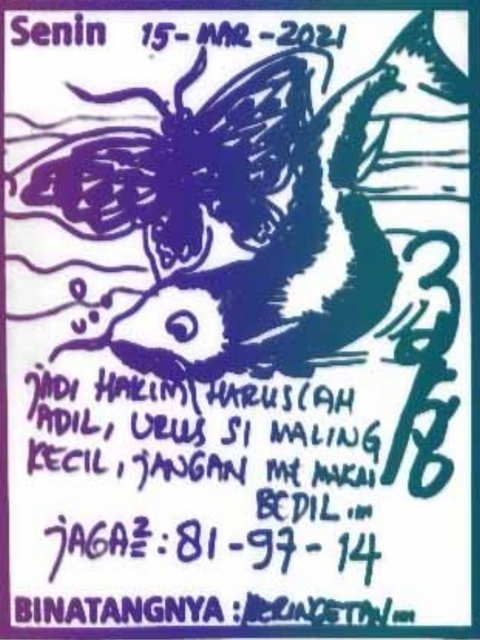 Senin 15-MAR-2021
jADI HAKIM HARUSLAH
ADIL, URUS SI MALING
KECIL, jANGAN MEMAKAI
BEDIL...
jAGA²: 81-97-14
BINATANGNYA :